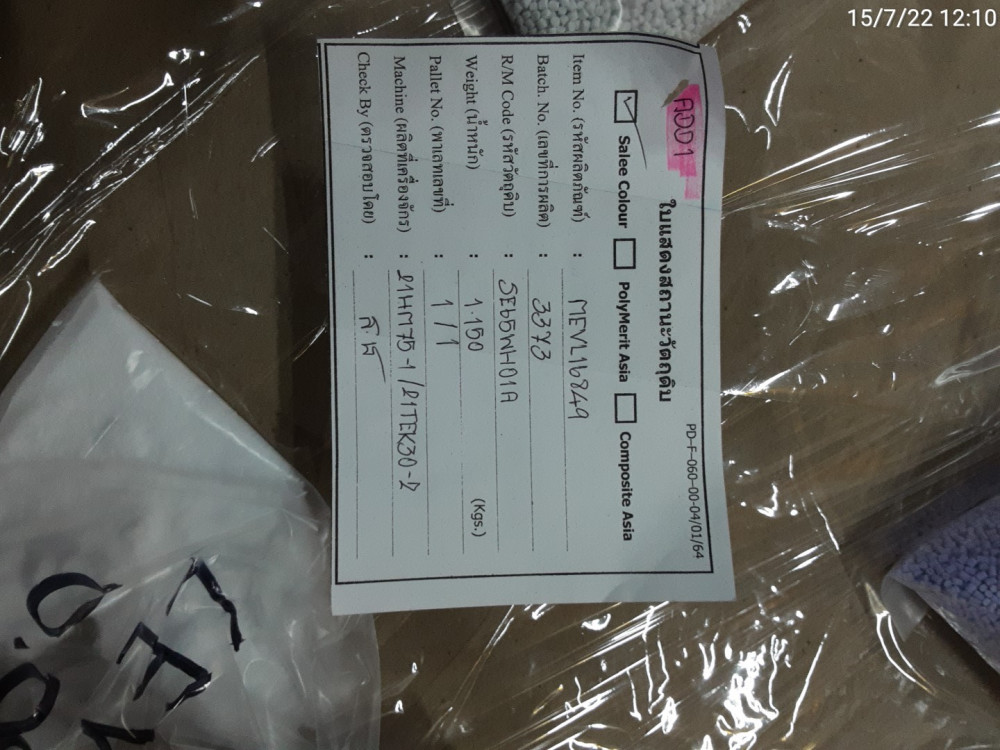 15/7/22 12:10
PD-F-060-00-04/01/64
A001
ใบแสดงสถานะวัตถุดิบ
Salee Colour PolyMerit Asia Composite Asia
Item No. (รหัสผลิตภัณฑ์) : MEVL16849
Batch. No. (เลขที่การผลิต) : 3373
R/M Code (รหัสวัตถุดิบ) : SEB5WH01A
Weight (น้ำหนัก) : 1.150 (Kgs.)
Pallet No. (พาเลทเลขที่) : 1/1
Machine (ผลิตที่เครื่องจักร) :
Check By (ตรวจสอบโดย) :